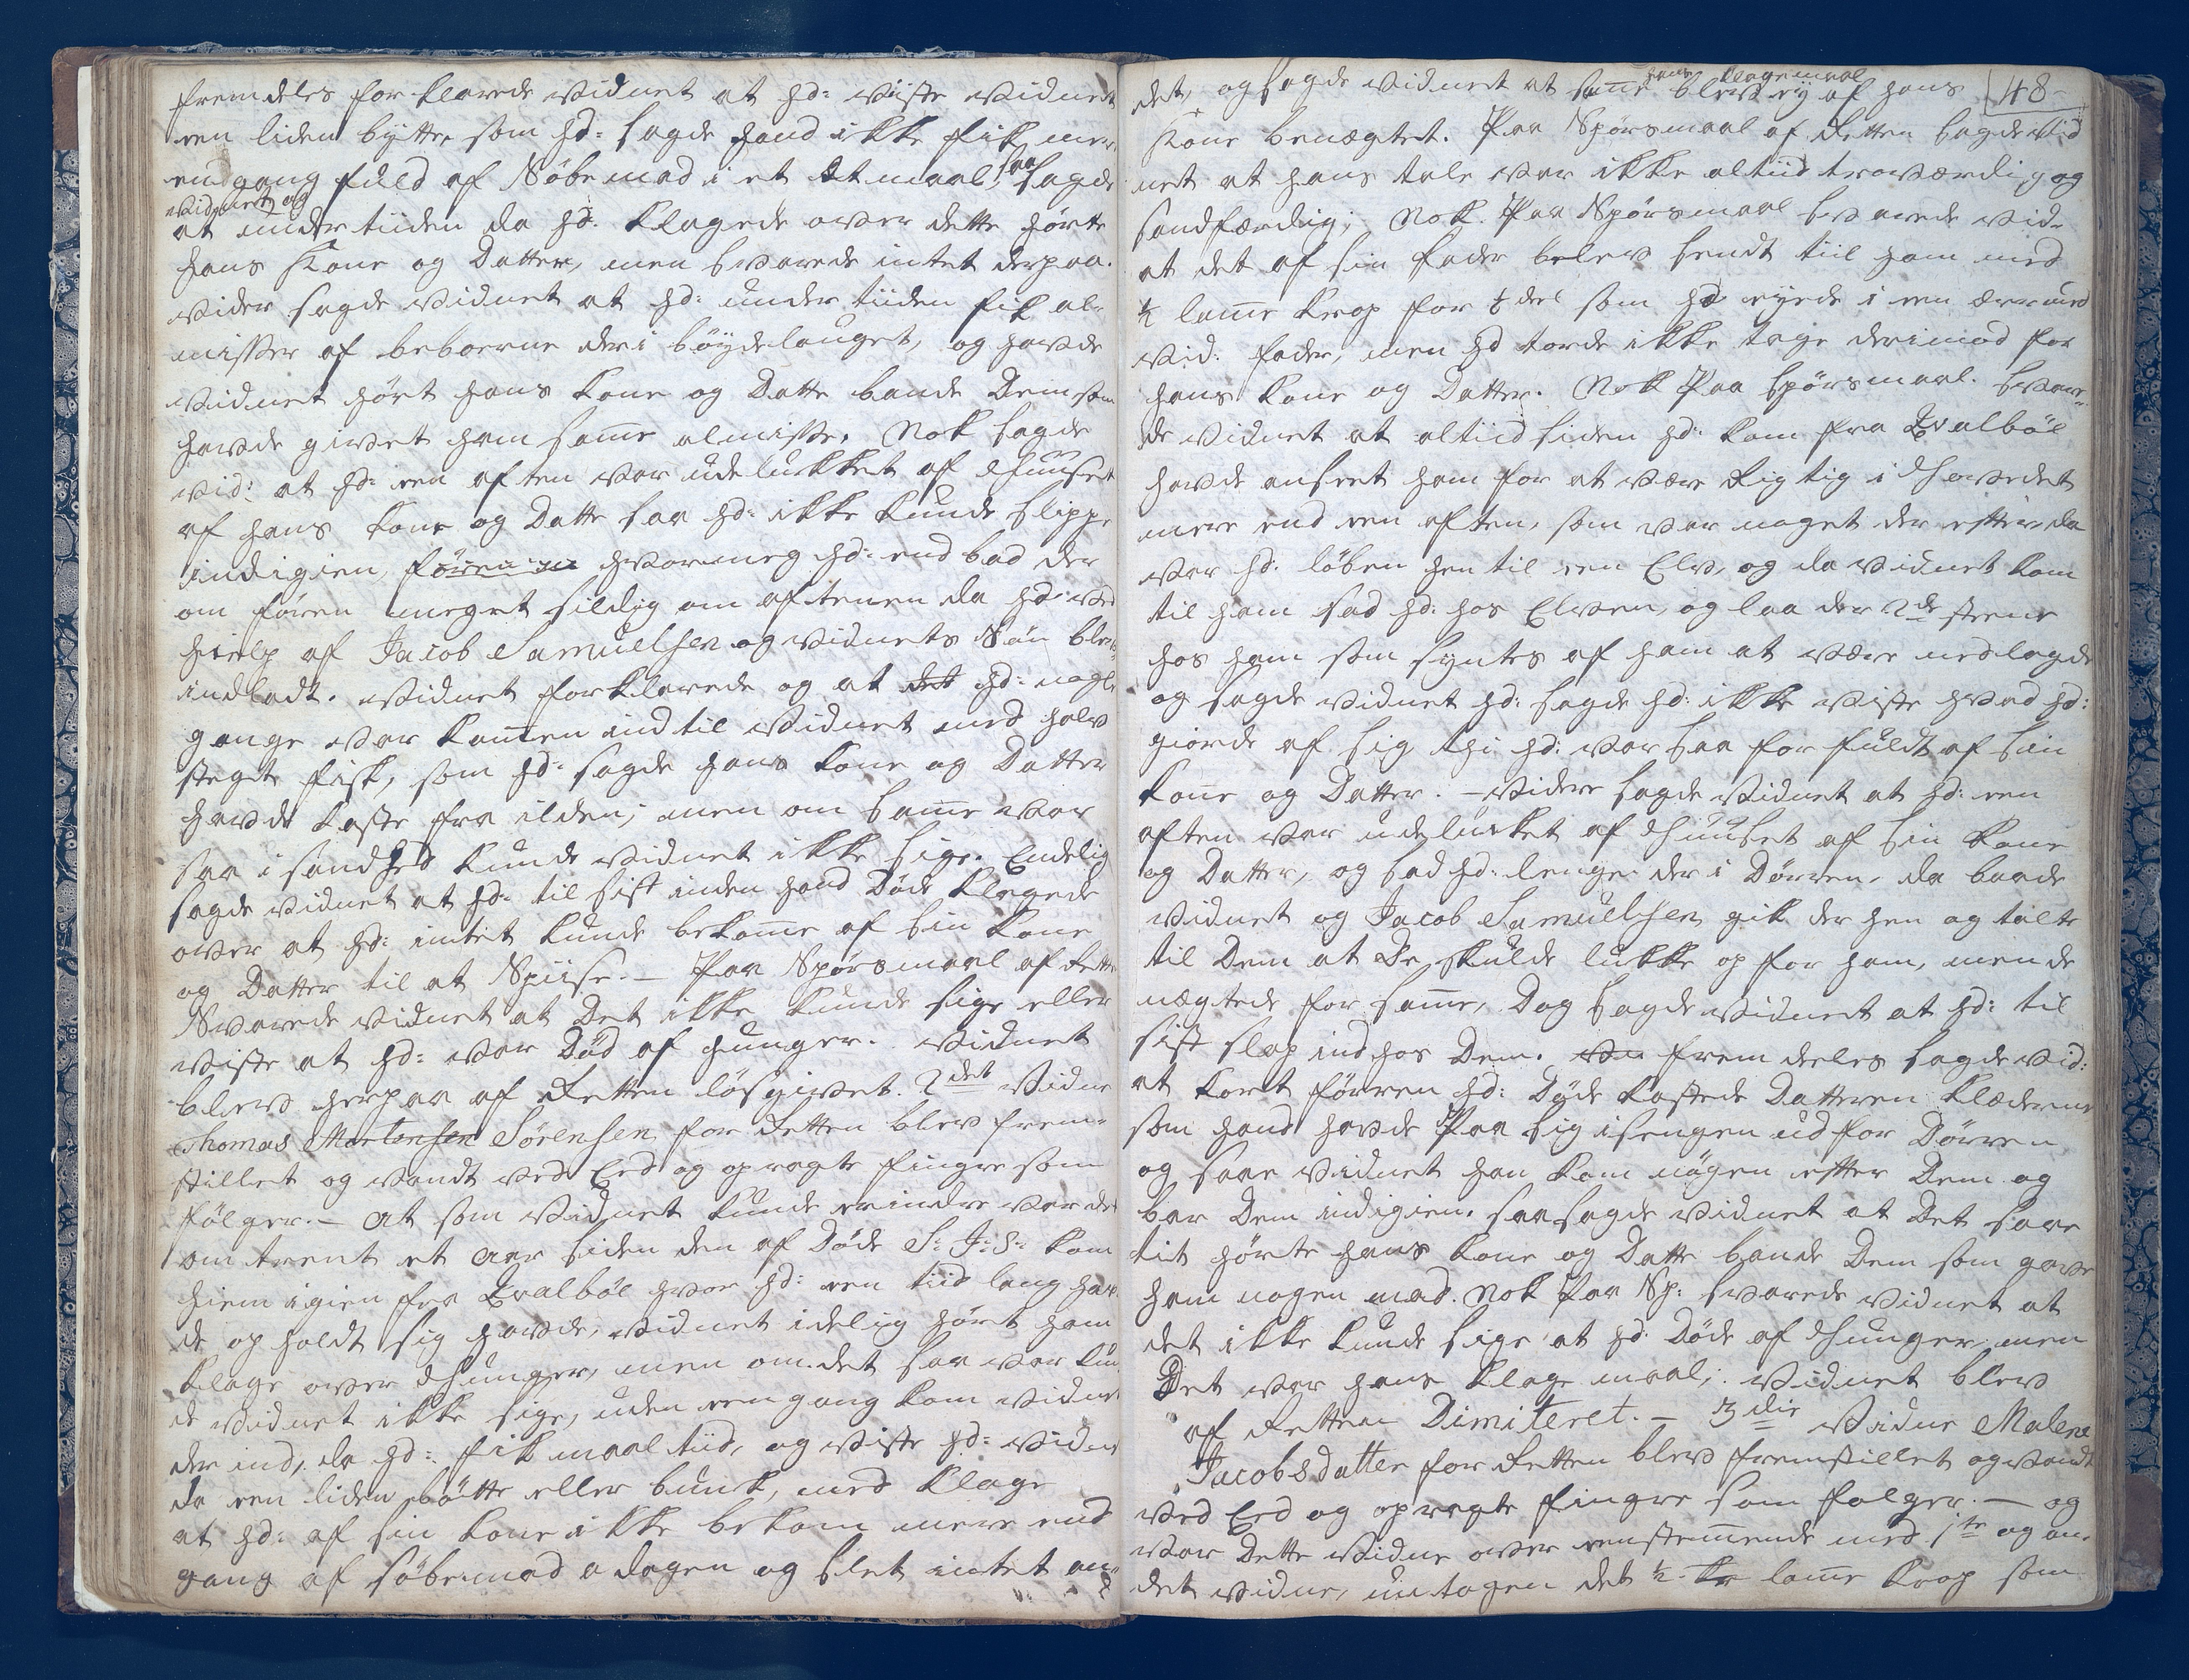 fremdeles forklarede vidnet at hd: viiste vidnet
een liden bytte, som hd: sagde hand ikke fik mer
engang fuld af Söbemad i et Etmaal, saa sagde
vidnet og
at undertiiden da hd: klagede over dette hörte
hans Kone og Datter, men svarede intet derpaa.
vider sagde vidnet at hd: undertiiden fik al-
misser af beboerne der i böydelauget, og havde
vidnet hört hans Kone og Datte bande Dem som
havde givet ham same almisse. Nok sagde
vid: at hd: een aften var udelukket af Huuset
af hans Kone og Datte saa hd: ikke kunde slippe
indigien, förren hvormeg hd: end bad der
om förren meget sildig om aftenen da hd: ved
hielp af Jacob Samuelsen og vidnets Sön blev
indladt. vidnet forklarede og at hd: nogle
gange var kommen ind til vidnet med halv
stegte fisk, som hd: sagde hans Kone og Datter
havde kaste fra ilden; men om same var
saa i sandhed kunde vidnet ikke sige. Endelig
sagde vidnet at hd: til sist inden hand Döde klagede
over at hd: intet kunde bekome af sin Kone
og Datter til at Spiise. – Paa Spörsmaal af Rette
Svarede vidnet at Det ikke kunde sige eller
viste at hd: var Död af hunger. Vidnet
blev herpaa af Retten lösgivet. 2det Vidne
Thomas Mortensen Sörensen for Retten blev frem-
stillet og vandt ved Eed og opragte fingre som
fölger. – at som vidnet kunde erindre var det
omtrent et aar siden den af Döde S: J:S: kom
hiem igien fra Qvalböe hvor hd: een tiid lang hav
de opholdt sig havde, vidnet idelig hört ham
klage over Hunger, men om det saa var kun
de vidnet ikke sige, uden een gang kom vidnet
der ind, da hd: fik maaltiid, og viste hd: vidnet
da een liden bötte eller bunk, med klage
at hd: af sin Kone ikke bekom mere end
gang af söbemad a dagen og slet intet an-
48
det, og sagde vidnet at same hans klagemaal blev ey af hans
Kone benægtet. Paa Spörsmaal af Retten sagde vid
net at hans tale var ikke altiid troværdig og
sandfærdig; Nok Paa Spörsmaal svarede vid-
at det af sin fader blev sendt til ham med
½ lame Krop for ½ deel som hd eyede i een ær med
vid: fader, men hd torde ikke tage derimod for
hans Kone og Datter. Nok Paa spörsmaal. svare-
de vidnet at altiid siden hd: kom fra Qvalböe
havde anseet ham for at være Rigtig i Hovedet
mere end een aften, som var noget der efter, da
var hd: löben hen til een Elv, og da vidnet kom
til ham sad hd: hos Elven, og laa der 2de steene
hos ham som syntes af ham at være nedlagde
og sagde vidnet hd: sagde hd: ikke viste hvad hd:
giorde af sig thi hd: var saa forfuldt af sin
Kone og Datter. – vidre sagde vidnet at hd: een
aften var udelukket af Huuset af sin Kone
og Datter, og sad hd: lenge der i Dörren, da baade
vidnet og Jacob Samuelsen gik der hen og talte
til Dem at De skulde lukke op for ham, men de
nægtede for same, Dog sagde vidnet at hd: til
sist slap ind hos Dem. fremdeles sagde vid:
at kort förren hd: Döde kastede Datteren Klæderne
som hand havde Paa sig i sengen ud for Dörren
og saae vidnet han kom nögen efter Dem og
bar Dem indigien. saa sagde vidnet at Det saae
tit hörte hans Kone og Datte bande Dem som gave
ham nogen mad. Nok Paa Sp: svarede vidnet at
det ikke kunde sige at hd: Döde af Hunger, men
Det var hans klagemaal; vidnet blev
af Retten Dimiteret. – 3die Vidne Malene
Jacobsdatter for Retten blev fremstillet og vandt
ved Eed og opragte fingre som fölger. – og
var Dette vidne over eenstemende med 1te og an-
det vidne, undtagen det ½ lame Krop som